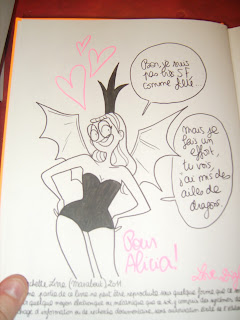 Bon, je suis
pas très SF,
comme fille...
Mais je
fais un
effort,
tu vois,
j'ai mis des
ailes de
dragon.
Pour
Alicia!
(Marabout) 2011.
partie de ce livre ne peut être reproduite sous quelque forme que ce
quelque moyen électronique ou mécanique que ce soit, y compris des systèmes de
d'information ou de recherche documentaire, sans autorisation écrite de l'éditeur